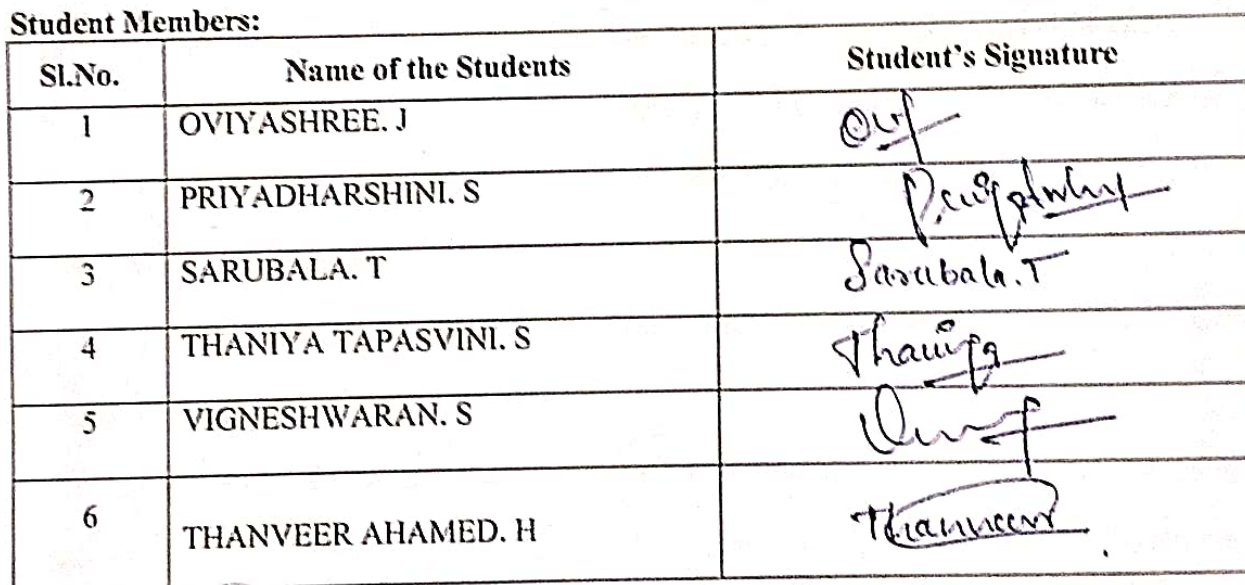 Student Members:
Sl.No. Name of the Students Student's Signature
1 OVIYASHREE. J
2 PRIYADHARSHINI. S
3 SARUBALA. T Sarubala.T
4 THANIYA TAPASVINI. S Thaniya
5 VIGNESHWARAN. S
6 THANVEER AHAMED. H Thanveer